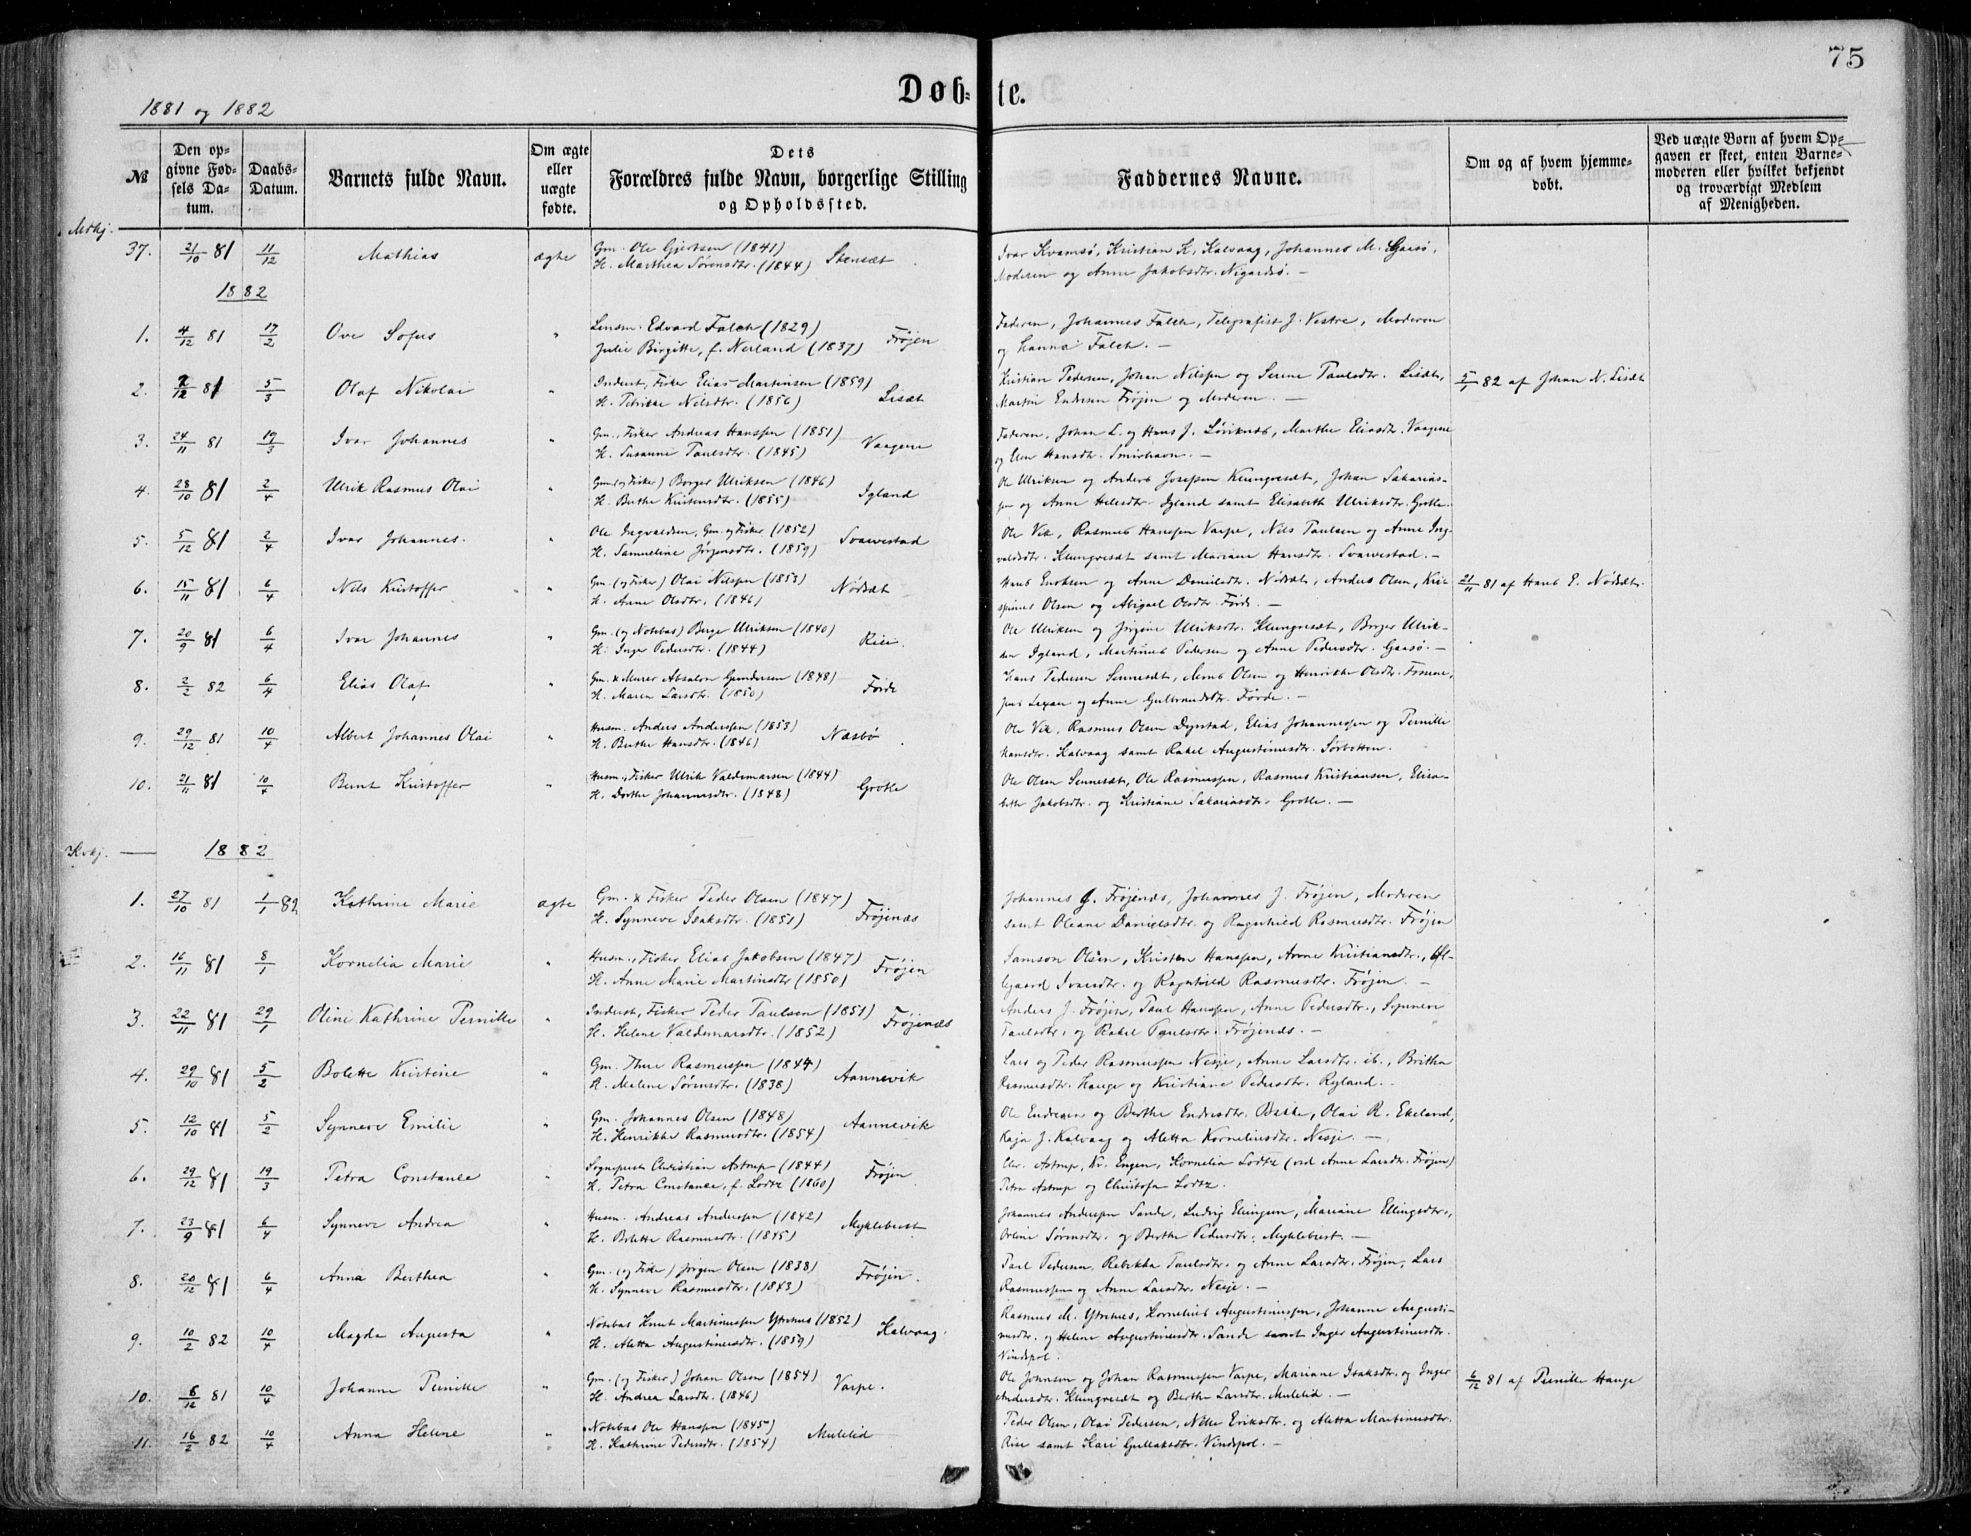 75
Døb- te.
1881 og 1882
№ Den op-givne Fød-sels Da-tum. Daabs-Datum. Barnets fulde Navn. Om ægte eller uægte fødte. Dets Forældres fulde Navn, borgerlige Stilling og Opholdssted. Faddernes Navne. Om og af hvem hjemme-døbt. Ved uægte Børn af hvem Op-gaven er skeet, enten Barne-moderen eller hvilket bekjendt og troværdigt Medlem af Menigheden.
37. 21/10 81 11/12 Mathias ægte Gm. Ole Gjertsen (1841) Ivar Kvamsø, Kristian K. Kalvaag, Johannes M. Gaasø,
H. Marthea Sørensdtr. (1844) Stensæt Moderen og Anne Jakobsdtr. Nigardsø. —
1882
1. 4/12 81 17/2 Ove Sofus " Lensm. Edvard Falch (1829) Faderen, Johannes Falch, Telegrafist J. Vestre, Moderen
Julie Birgitte, f. Nerland (1837) Frøjen og Hanna Falch. —
2. 81 5/3 Olaf Nikolai " Inderst, Fisker Elias Martinsen (1859) Kristian Pedersen, Johan Nilssen og Serine Paulsdtr. Lisæt, 5/1 82 af Johan N. Lisæt
H. Petrikke Nilsdtr. (1856) Lisæt Martin Endresen Frøjen og Moderen. —
3. 24/11 81 17/3 Ivar Johannes " Gm., Fisker Andreas Hanssen (1851) Faderen, Johan L. og Hans J. Løviknes, Marthe Eliasdtr. Vaagene
H. Susanne Paulsdtr. (1845) Vaagene og Elen Hansdtr. Smørhavn. —
4. 28/10 81 2/4 Ulrik Rasmus Olai " Gm. (og Fisker) Borger Ulriksen (1846) Ole Ulriksen og Anders Josefsen Klungresæt, Johan Sakarias-
H. Berthe Kristensdtr. (1855) Igland sen og Anne Helesdtr. Igland samt Elisabeth Ulriksdtr. Grotle.
5. 5/12 81 2/4 Ivar Johannes. " Ole Ingvaldsen, Gm. og Fisker (1852) Ole Vik, Rasmus Hanssen Varpe, Nils Paulsen og Anne Ing-
H. Samueline Jørgensdtr. (1859) Svarvestad valdsdtr. Klungresæt samt Mariane Hansdtr. Svarvestad. —
6. 15/11 81 6/4 Nils Kristoffer " Gm. (og Fisker) Olai Nilssen (1853) Hans Enoksen og Anne Danielsdtr. Nødsæt, Anders Olsen, Kri- 21/11 81 af Hans E. Nødsæt.
H. Anne Olsdtr. (1846) Nødsæt spinus Olsen og Abigael Olsdtr. Førde. —
7. 20/9 81 6/4 Ivar Johannes " Gm. (og Notebas) Berge Ulriksen (1840) Ole Ulriksen og Jørgine Ulriksdtr. Klungresæt, Borger Ulrik-
H. Inger Pedersdtr. (1844) Rise. sen Igland, Martinus Pedersen og Anne Pedersdtr. Gaasø. —
8. 2/2 82 6/4 Elias Olaf " Gm. & Murer Absalon Gundersen (1848) Hans Pedersen Sennesæt, Mons Olsen og Henrikke Olsdtr.
H. Maren Larsdtr. (1850) Førde og Anne Gulbrandsdtr. Førde. —
9. 29/12 81 10/4 Albert Johannes Olai " Husm. Anders Anderssen (1853) Ole Vik, Rasmus Olsen Dyrstad, Elias Johannessen og Pernille
H. Berthe Hansdtr. (1846) Næsbø Hansdtr. Kalvaag samt Rakel Augustinusdtr. Sørbotten.
10. 21/11 81 10/4 Bernt Kristoffer " Husm., Fisker Ulrik Valdemarsen (1844) Ole Olsen Sennesæt, Ole Rasmussen, Rasmus Kristiansen, Elisa-
H. Dorthe Johannesdtr. (1848) Grotle beth Jakobsdtr. og Kristiane Sakariasdtr. Grotle. —
1882
1. 27/10 81 1/1 82 Kathrine Marie ægte Gm. & Fisker Peder Olsen (1847) Johannes J. Frøjenæs, Johannes J. Frøjen, Moderen
H. Synneve Isaksdtr. (1851) Frøjenæs samt Oleane Danielsdtr. og Ragnhild Rasmusdtr. Frøjen
2. 16/11 81 8/1 Kornelia Marie " Husm., Fisker Elias Jakobsen (1847) Samson Olsen, Kristen Hanssen, Anne Kristiansdtr., Øl-
H. Anne Marie Martinsdtr. (1850) Frøjen legaard Ivarsdtr. og Ragnhild Rasmusdtr. Frøjen. —
3. 22/11 81 29/1 Oline Kathrine Pernille " Inderst, Fisker Peder Paulsen (1851) Anders J. Frøjen, Paul Hanssen, Anne Pedersdtr., Synneve
H. Helene Valdemarsdtr. (1852) Frøjenæs Paulsdtr. og Rakel Paulsdtr. Frøjenæs. —
4. 29/10 81 5/2 Bolette Kristine " Gm. Thure Rasmussen (1844) Lars og Peder Rasmussen Nesje, Anne Larsdtr. ib., Britha
H. Malene Sørensdtr. (1838) Aannevik Rasmusdtr. Hauge og Kristiane Pedersdtr. Ryland. —
5. 12/10 81 5/2 Synneve Emilie " Gm. Johannes Olsen (1848) Ole Endresen og Berthe Endresdtr. Bakke, Olai R. Ekeland,
H. Henrikke Rasmusdtr. (1854) Aannevik Kaja J. Kalvaag og Aletta Korneliusdtr. Nesje. —
6. 29/12 81 19/3 Petra Constance " Sogneprest Christian Astrup (1844) Chr. Astrup, Kr. Engen, Kornelia Lodtz (ved Anne Larsdtr. Frøjen)
H. Petra Constance, f. Lodtz (1860) Frøjen Petra Astrup og Christofa Lodtz.
7. 23/9 81 6/4 Synneve Andrea " Husm. Andreas Anderssen (1842) Johannes Anderssen Sande, Ludvig Ellingsen, Mariane Ellingsdtr.,
H. Bolette Rasmusdtr. (1845) Myklebust Oline Sørensdtr. og Berthe Pedersdtr. Myklebust. —
8. 20/12 81 6/4 Anna Berthea " Gm. (og Fisker) Jørgen Olsen (1838) Paul Pedersen, Rebekka Paulsdtr. og Anne Larsdtr. Frøjen, Lars
H. Synneve Rasmusdtr. (1843) Frøjen. Rasmussen og Anne Larsdtr. Nesje. —
9. 10/2 82 10/4 Magda Augusta " Notebas Knut Martinussen Ytrenes (1852) Rasmus M. Ytrenes, Kornelius Augustinussen, Johanne Augusti-
H. Aletta Augustinusdtr. (1859) Kalvaag. nusdtr. og Helene Augustinusdtr. Sande samt Inger Augustinusdtr.
Vindspol.
10. 6/12 81 10/4 Johanne Pernille " Gm. (og Fisker) Johan Olsen (1854) Ole Johnsen og Johan Rasmussen Varpe, Mariane Isaksdtr. og Inger 6/12 81 af Pernille Hauge
H. Andrea Larsdtr. (1846) Varpe. Andersdtr. Klungresæt og Berthe Larsdtr. Mulelid. —
11. 16/2 82 10/4 Anna Helene " Notebas Ole Hanssen (1845) Peder Olsen, Olai Pedersen, Nille Eriksdtr. og Aletta Martinusdtr.
H. Kathrine Pedersdtr. (1854) Mulelid Rise samt Kari Gullaksdtr. Vindspol. —